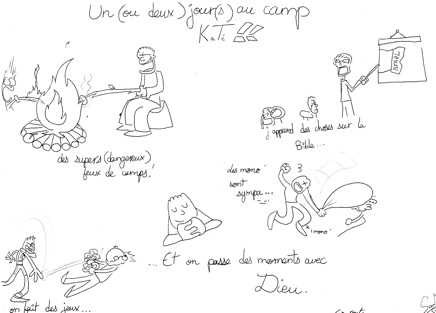 Un (ou deux) jour(s) au camp
KaTé
des supers (dangereux)
feux de camps!
j'apprend des choses sur la
Bible...
Les mono'
sont
sympa...
'mono'
on fait des jeux...
... Et on passe des momants avec
Dieu.